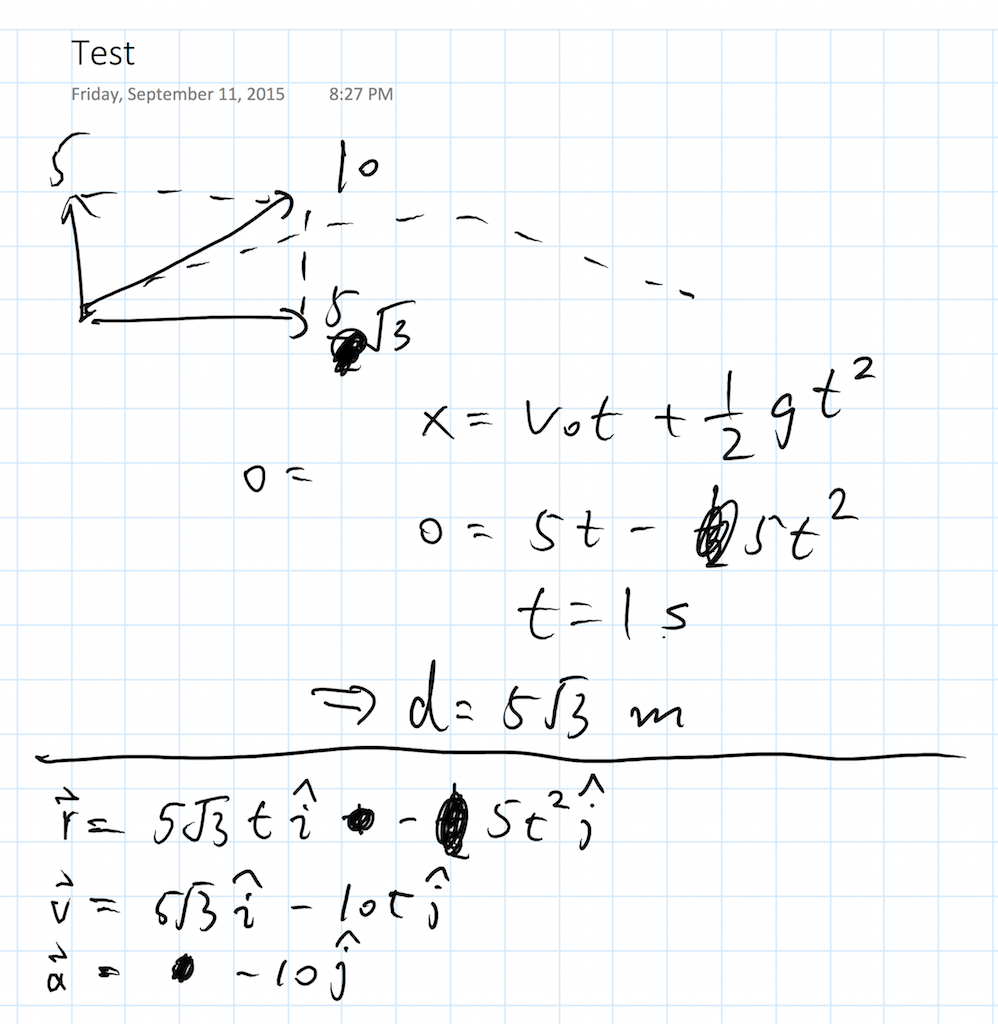 Test
Friday, September 11, 2015 8:27 PM
5
10
5√3
x = v₀t + ½ gt²
0 =
0 = 5t - 5t²
t = 1 s
⇒ d = 5√3 m
r⃗ = 5√3 t î - 5t² ĵ
v⃗ = 5√3 î - 10t ĵ
a⃗ = -10 ĵ